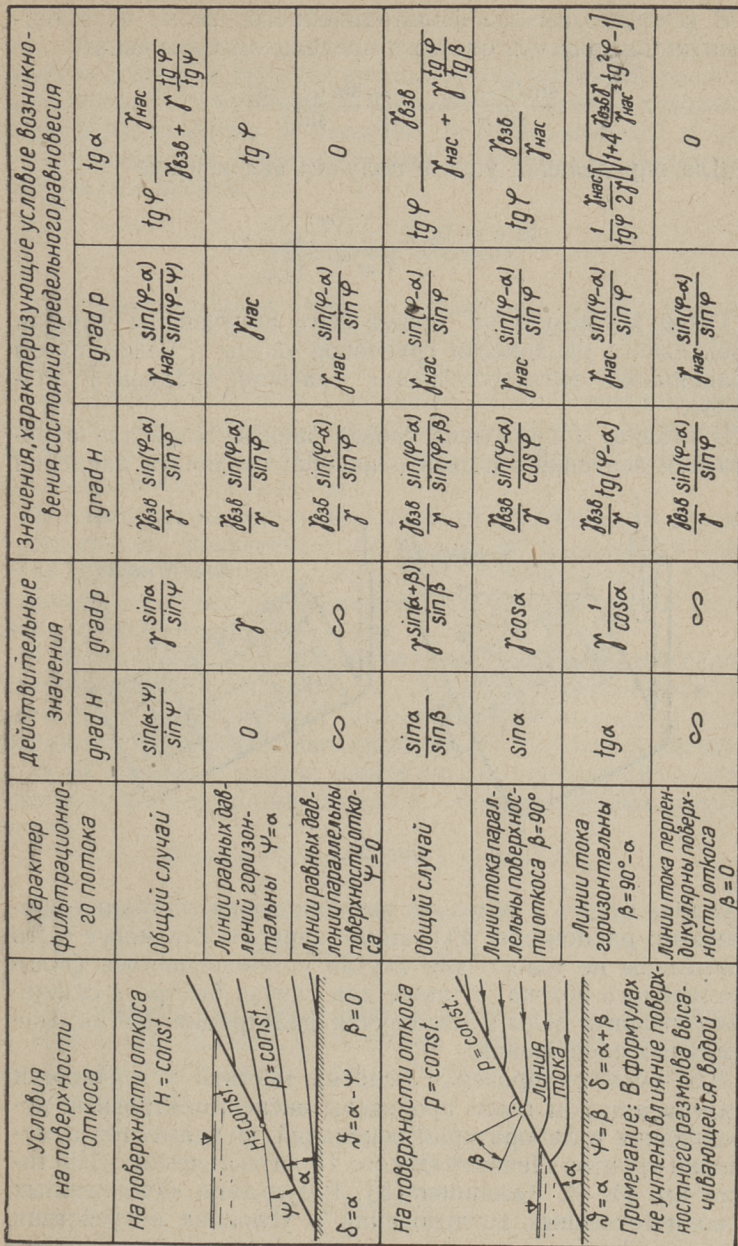 Условия
на поверхности
откоса
Характер
фильтрационно-
го потока
Действительные
значения
Значения, характеризующие условие возникно-
вения состояния предельного равновесия
grad H
grad p
grad H
grad p
tg α
На поверхности откоса
H = const.
H=const.
p=const.
ψ
α
δ=α ϑ=α-ψ β=0
Общий случай
sin(α-ψ)/sin ψ
γ sinα/sinψ
γвзв/γ sin(φ-α)/sin φ
γнас sin(φ-α)/sin(φ-ψ)
tg φ γнас/(γвзв + γ tg φ/tg ψ)
Линии равных дав-
лений горизон-
тальны ψ=α
0
γ
γвзв/γ sin(φ-α)/sin φ
γнас
tg φ
Линии равных дав-
лении параллельны
поверхности отко-
са ψ=0
∞
∞
γвзв/γ sin(φ-α)/sin φ
γнас sin(φ-α)/sin φ
0
На поверхности откоса
p = const.
p=const.
β
ЛИНИЯ
ТОКА
α
ϑ=α ψ=β δ=α+β
Примечание: В формулах
не учтено влияние поверх-
ностного размыва выса-
чивающейся водой
Общий случай
sinα/sinβ
γ sin(α+β)/sin β
γвзв/γ sin(φ-α)/sin(φ+β)
γнас sin(φ-α)/sin φ
tg φ γвзв/(γнас + γ tg φ/tg β)
Линии тока парал-
лельны поверхнос-
ти откоса β=90°
sin α
γcosα
γвзв/γ sin(φ-α)/cos φ
γнас sin(φ-α)/sin φ
tg φ γвзв/γнас
Линии тока
горизонтальны
β=90°-α
tgα
γ 1/cosα
γвзв/γ tg(φ-α)
γнас sin(φ-α)/sin φ
1/tgφ γнас/2γ [√1+4 γвзвγ/γнас² tg²φ -1]
Линии тока перпен-
дикулярны поверх-
ности откоса
β=0
∞
∞
γвзв/γ sin(φ-α)/sin φ
γнас sin(φ-α)/sin φ
0